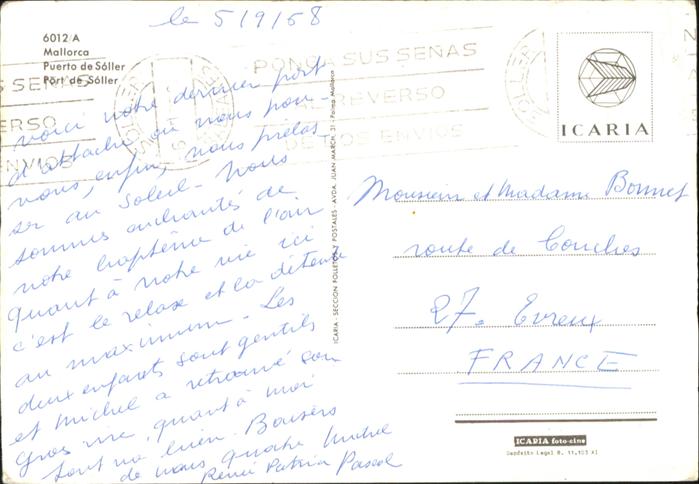 le 5/9/68
6012/A
Mallorca
Puerto de Sóller
Port de Sóller
PONGA SUS SEÑAS
AL REVERSO
DE TOS ENVIOS
SEÑAS
VERSO
ENVIOS
SOLLER
ICARIA
Voici notre dernier port
d'attache où nous pou-
vons, enfin, nous prélas-
ser au soleil. Nous
sommes enchantés de
notre baptême de l'air
quant à notre vie ici
c'est le relaxe et la détente
au maximum. Les
deux enfants sont gentils
et Michel a retrouvé son
gros rire, quant à moi
tout va bien. Baisers
de nous quatre Michel
Renée Patricia Pascal
ICARIA - SECCION POLLETOS Y POSTALES - AVDA. JUAN MARCH, 31 - Palma Mallorca
Monsieur et Madame Bonnet
route de Conches
27. Evreux
FRANCE
ICARIA foto-cine
Depósito Legal B. 11.103 XI